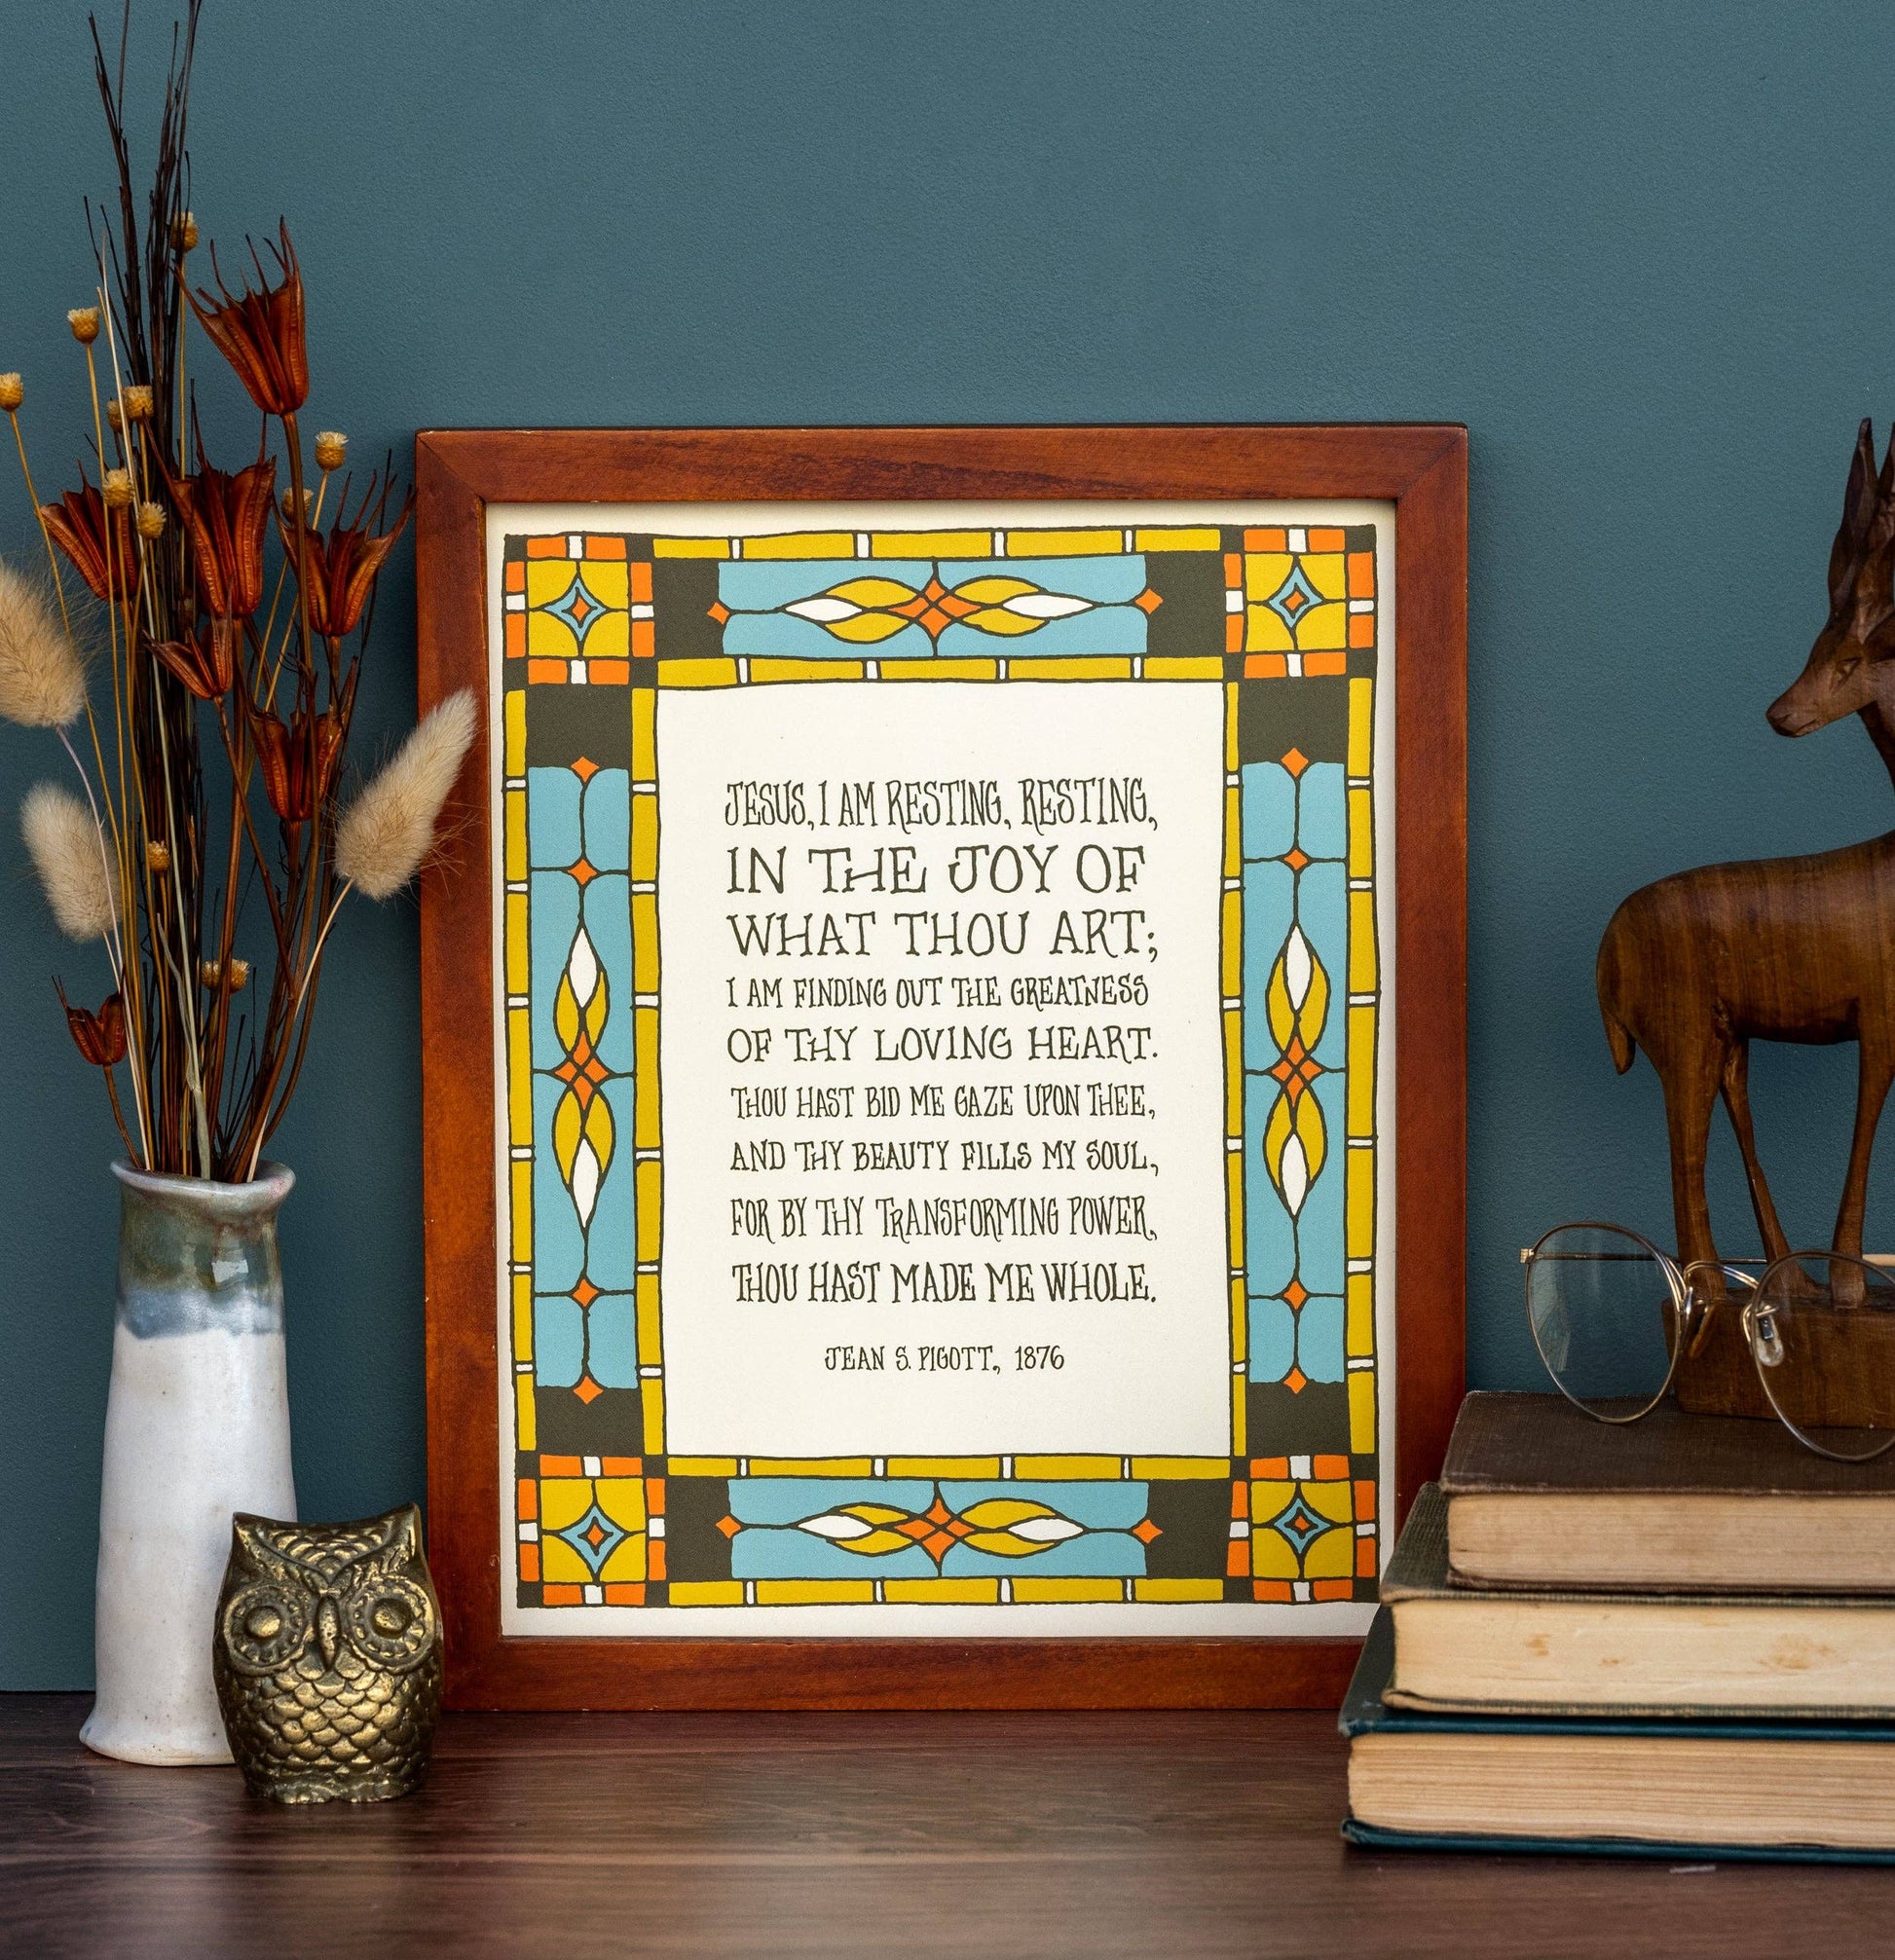 JESUS, I AM RESTING, RESTING,
IN THE JOY OF
WHAT THOU ART;
I AM FINDING OUT THE GREATNESS
OF THY LOVING HEART.
THOU HAST BID ME GAZE UPON THEE,
AND THY BEAUTY FILLS MY SOUL,
FOR BY THY TRANSFORMING POWER,
THOU HAST MADE ME WHOLE.
JEAN S. PIGOTT, 1876